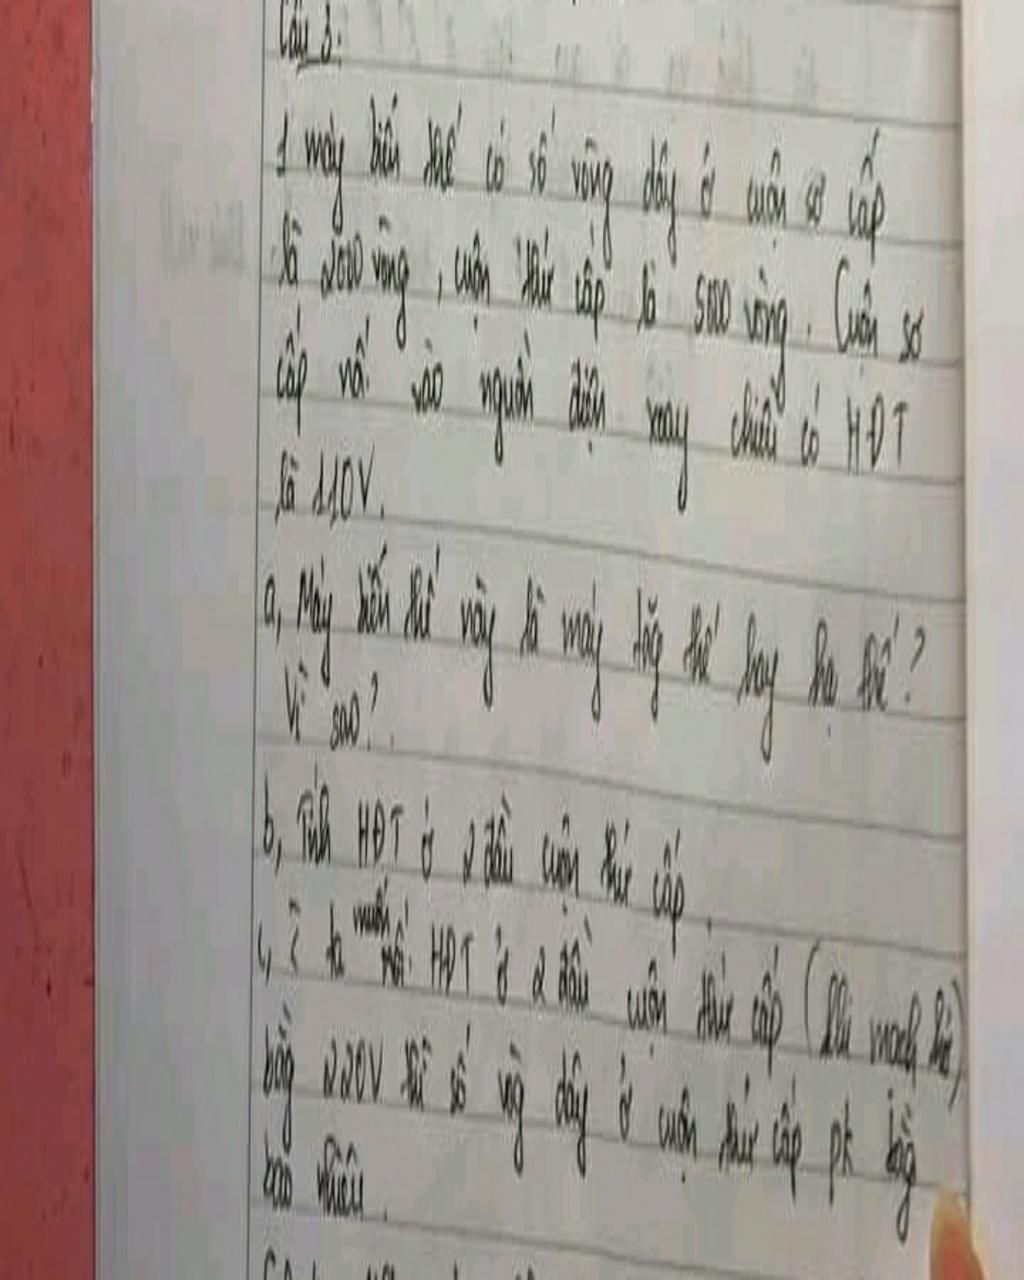 Câu 3:
1 máy biến thế có số vòng dây ở cuộn sơ cấp
là 2000 vòng, cuộn thứ cấp là 5000 vòng. Cuộn sơ
cấp nối vào nguồn điện xoay chiều có HĐT
là 110V.
a, Máy biến thế này là máy tăg thế hay hạ thế?
Vì sao?
b, Tính HĐT ở 2 đầu cuộn thứ cấp.
c, ta muốn HĐT ở 2 đầu cuộn thứ cấp (khi mạch hở)
bằg 220V thì số vòg dây ở cuộn thứ cấp pk bằg
bao nhiêu.